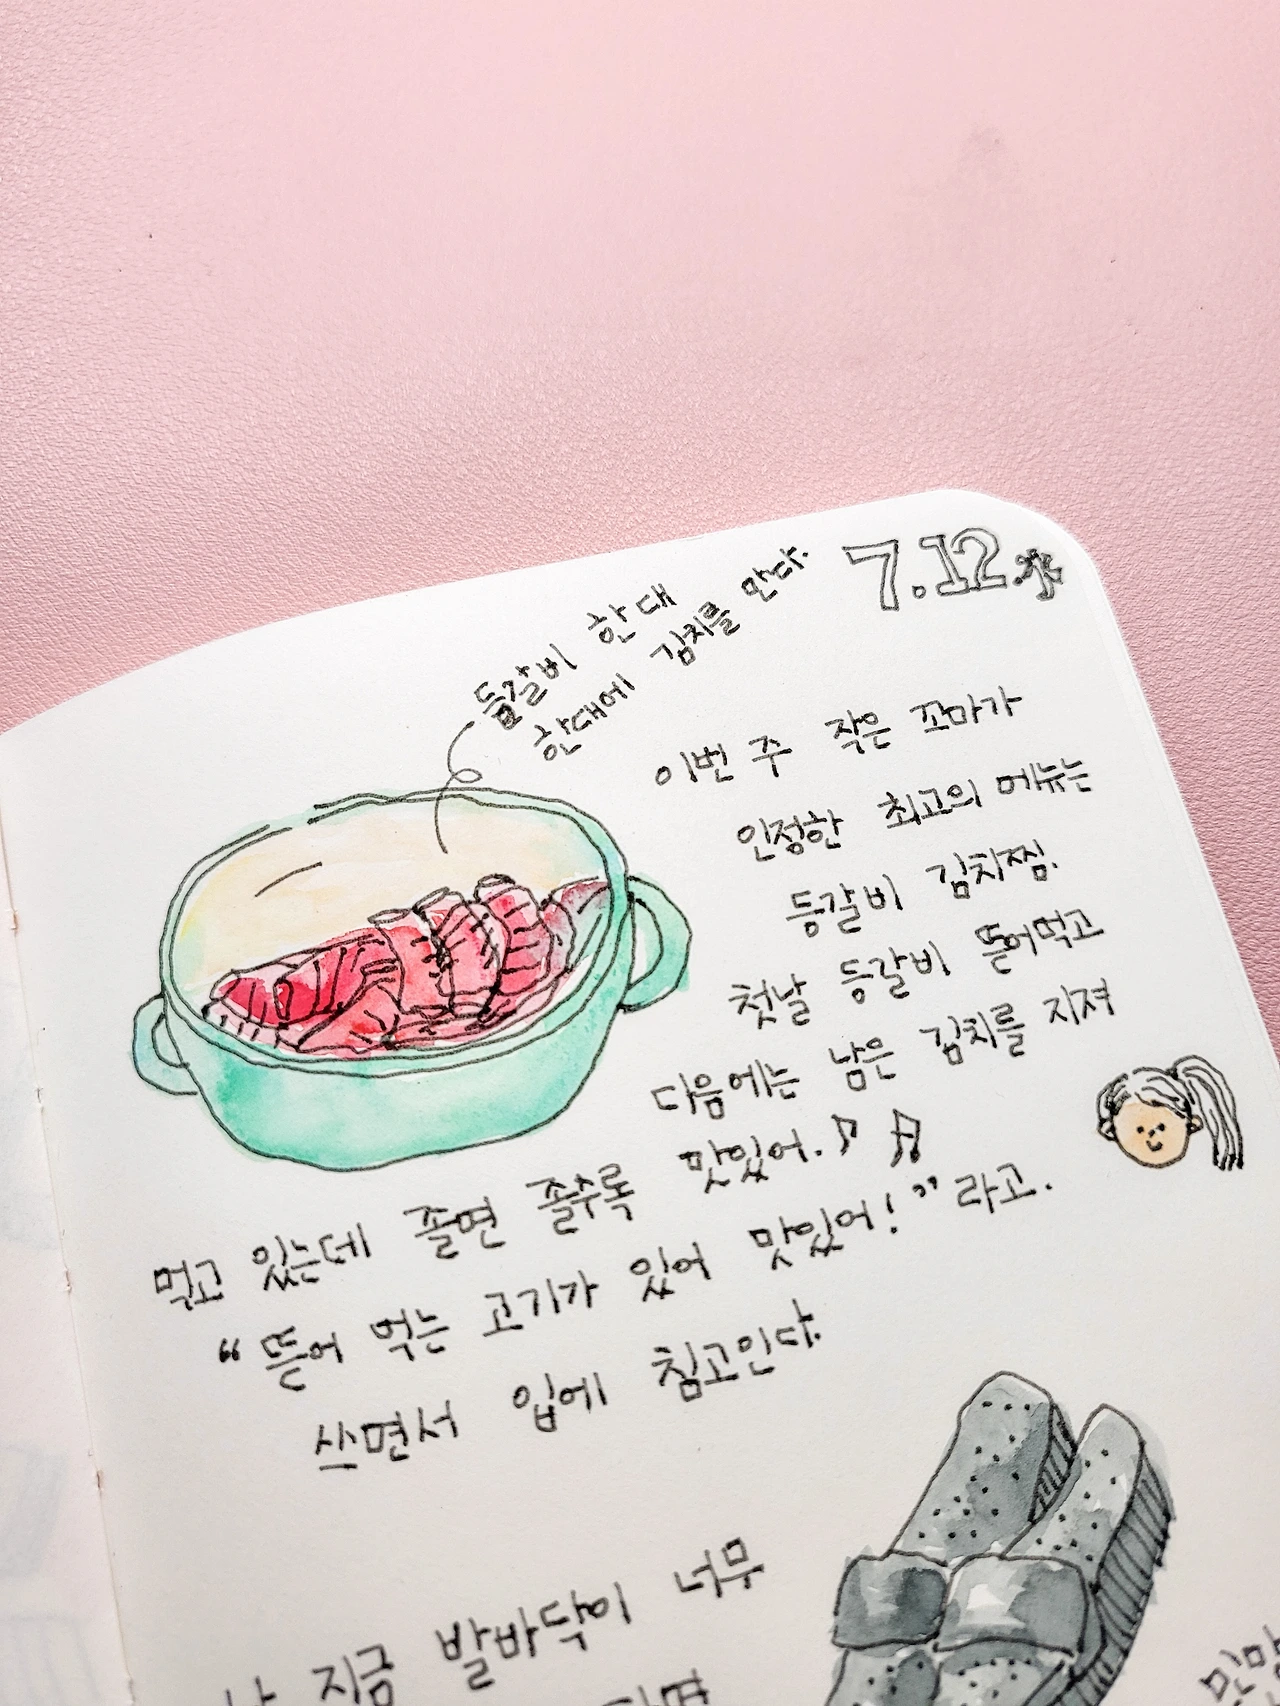 7.12.水
등갈비 한대
한대에 김치를 만다.
이번 주 작은 꼬마가
인정한 최고의 메뉴는
등갈비 김치찜.
첫날 등갈비 뜯어먹고
다음에는 남은 김치를 지져
먹고 있는데 졸면 졸수록 맛있어.♪
“뜯어 먹는 고기가 있어 맛있어!” 라고.
쓰면서 입에 침고인다.
지금 발바닥이 너무